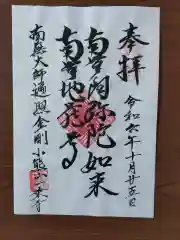 奉拝
令和六年十月廿五日
南無阿弥陀如来
南無地蔵尊
南無大師遍照金剛